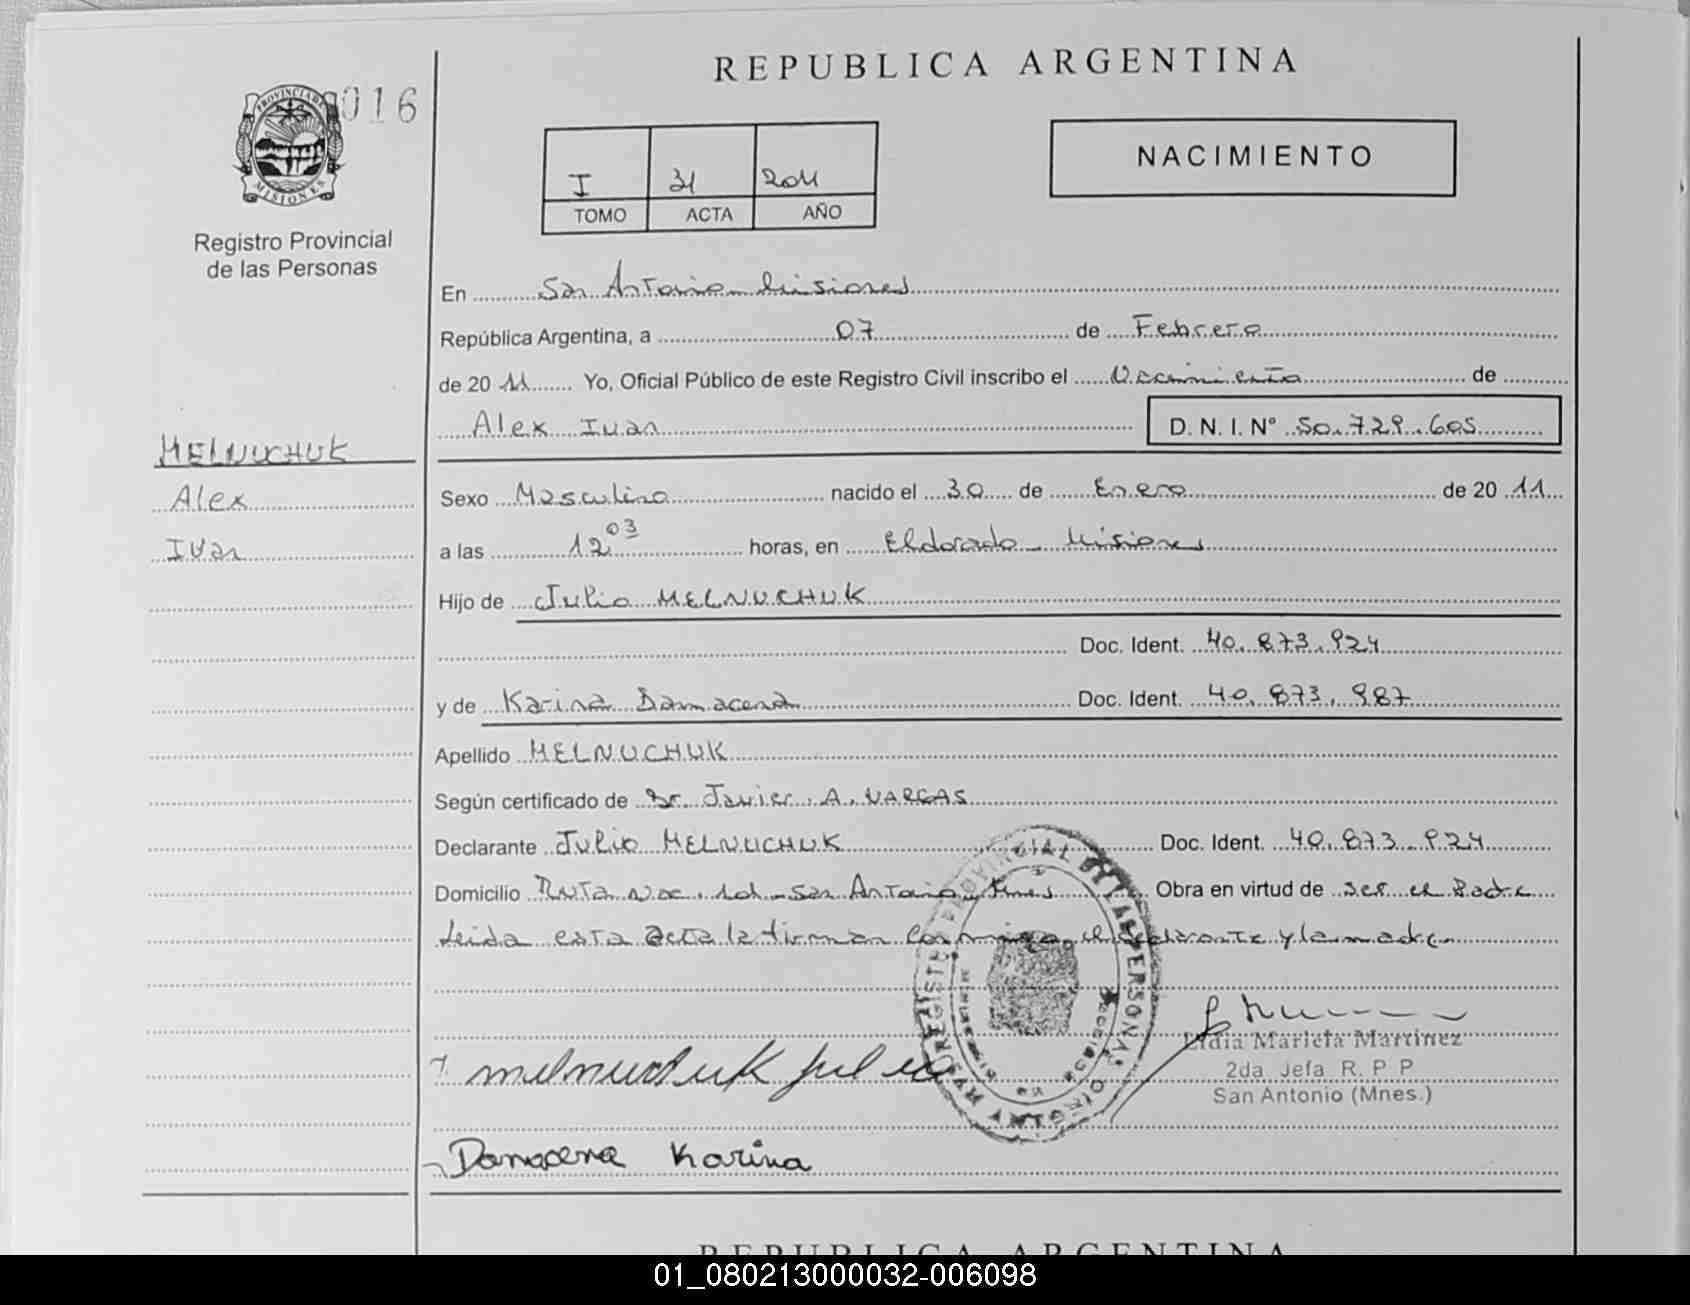 REPUBLICA ARGENTINA
PROVINCIA DE
MISIONES
016
Registro Provincial
de las Personas
I 31 2011
TOMO ACTA AÑO
NACIMIENTO
En San Antonio Misiones
República Argentina, a 07 de Febrero
de 20 11 Yo, Oficial Público de este Registro Civil inscribo el Nacimiento de
Alex Ivan D. N. I. N° 50.729.605
MELNUCHUK
Alex
Ivan
Sexo Masculino nacido el 30 de Enero de 20 11
a las 12 03 horas, en Eldorado - Misiones
Hijo de Julio MELNUCHUK
Doc. Ident. 40.873.924
y de Karina Damacena Doc. Ident. 40.873.987
Apellido MELNUCHUK
Según certificado de Dr. Javier A. VARGAS
Declarante Julio MELNUCHUK Doc. Ident. 40.873.924
Domicilio Ruta Nac. 101 - San Antonio, Mnes Obra en virtud de ser el Padre
Leida esta acta la firman conmigo, el declarante y la madre
Lidia Mariela Martinez
2da Jefa R. P. P
San Antonio (Mnes.)
melnuchuk julio
Damacena Karina
REPUBLICA ARGENTINA
01_080213000032-006098